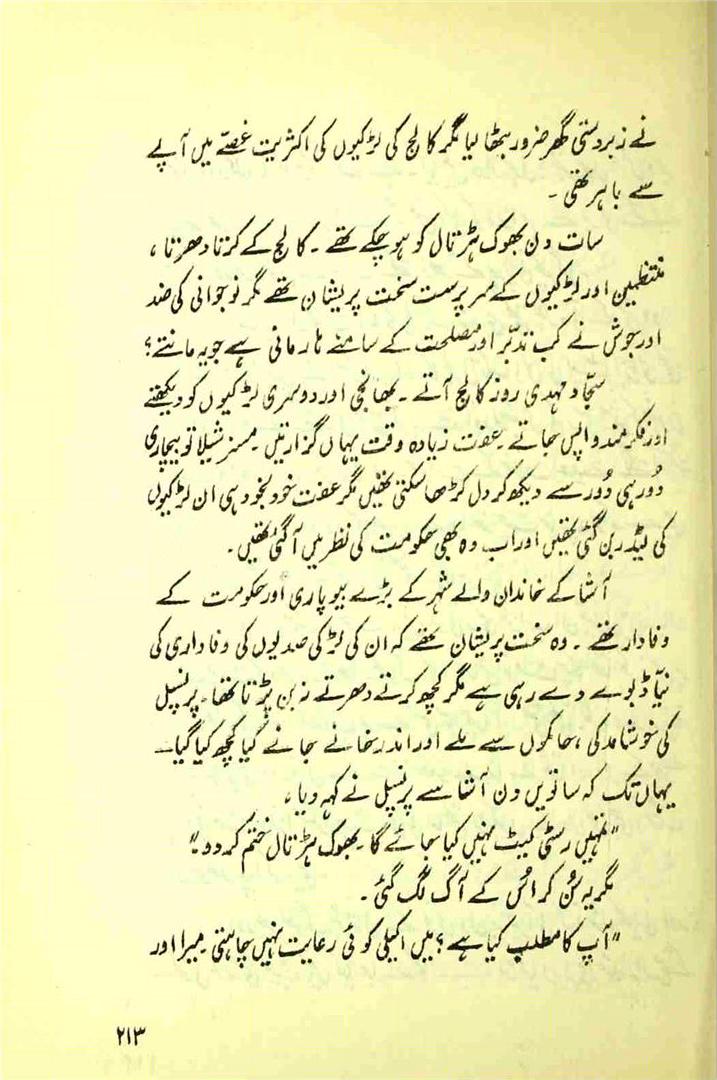 نے زبردستی گھر ضرور بٹھا لیا مگر کالج کی لڑکیوں کی اکثریت غصّے میں آپے
سے باہر تھی ۔
سات دن بھوک ہڑتال کو ہو چکے تھے ۔ کالج کے کرتا دھرتا ،
منتظمین اور لڑکیوں کے سرپرست سخت پریشان تھے مگر نوجوانی کی ضد
اور جوش نے کب تدبّر اور مصلحت کے سامنے ہار مانی ہے جو یہ مانتے ؟
سجّاد مہدی روز کالج آتے ۔ بھانجی اور دوسری لڑکیوں کو دیکھتے
اور فکرمند واپس جاتے ۔ عفت زیادہ وقت یہاں گزارتیں ۔ مسز شیلا تو بیچاری
دُور ہی دُور سے دیکھ کر دل کڑھا سکتی تھیں مگر عفت خود بخود ہی ان لڑکیوں
کی لیڈر بن گئی تھیں اور اب وہ بھی حکومت کی نظر میں آ گئی تھیں ۔
آشا کے خاندان والے شہر کے بڑے بیوپاری اور حکومت کے
وفادار تھے ۔ وہ سخت پریشان تھے کہ ان کی لڑکی صدیوں کی وفاداری کی
نیّا ڈبوے دے رہی ہے مگر کچھ کرتے دھرتے نہ بن پڑتا تھا ۔ پرنسپل
کی خوشامد کی ، حاکموں سے ملے اور اندر خانے جانے کیا کچھ کیا گیا ــ
یہاں تک کہ ساتویں دن آشا سے پرنسپل نے کہہ دیا ،
”تمہیں رسٹی کیٹ نہیں کیا جائے گا ۔ بھوک ہڑتال ختم کر دو ۔“
مگر یہ سُن کر اُس کے آگ لگ گئی ۔
”آپ کا مطلب کیا ہے ؟ میں اکیلی کوئی رعایت نہیں چاہتی ۔ میرا اور
۲۱۳